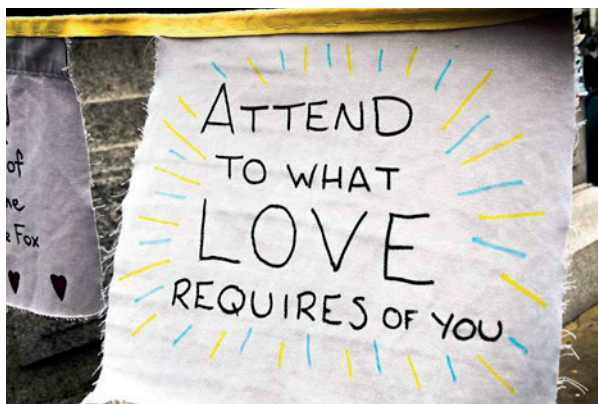 of
Fox
ATTEND
TO WHAT
LOVE
REQUIRES OF YOU